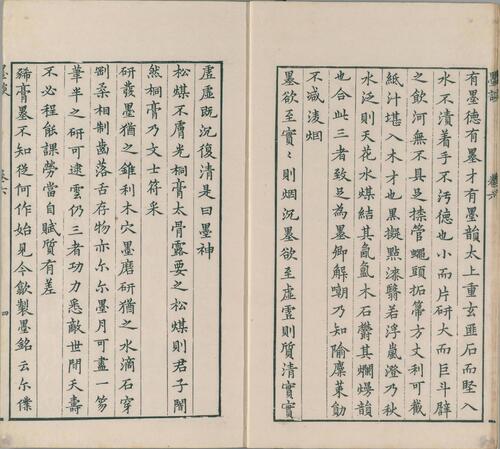 有墨德有墨才有墨韻太上重玄匪石而堅入
水不漬着手不污德也小而片研大而巨斗辟
之飲河無不具足搽管蠅頭柘篛方丈利可截
紙汁堪入木才也黑擬點漆翳若浮嵐澄乃秋
水泛則天花水煤結其氤氳木石欝其爛熳韻
也合此三者致足為墨卿解嘲乃知隃麋菄勣
不减淩烟
墨欲至實〻則烟沉墨欲至虛虛則質清實實
虛虛既沉復清是曰墨神
松煤不膚光桐膏太骨露要之松煤則君子闇
然桐膏乃文士符采
研發墨猶之錐利木穴墨磨研猶之水滴石穿
剛柔相制齒落舌存物亦尒尒墨月可盡一笏
筆半之研可逮雲仍三者功力悉敵世閒夭壽
不必程能課勞當自賦質有差
豨膏墨不知從何作始見今歙製墨銘云尒儽
四